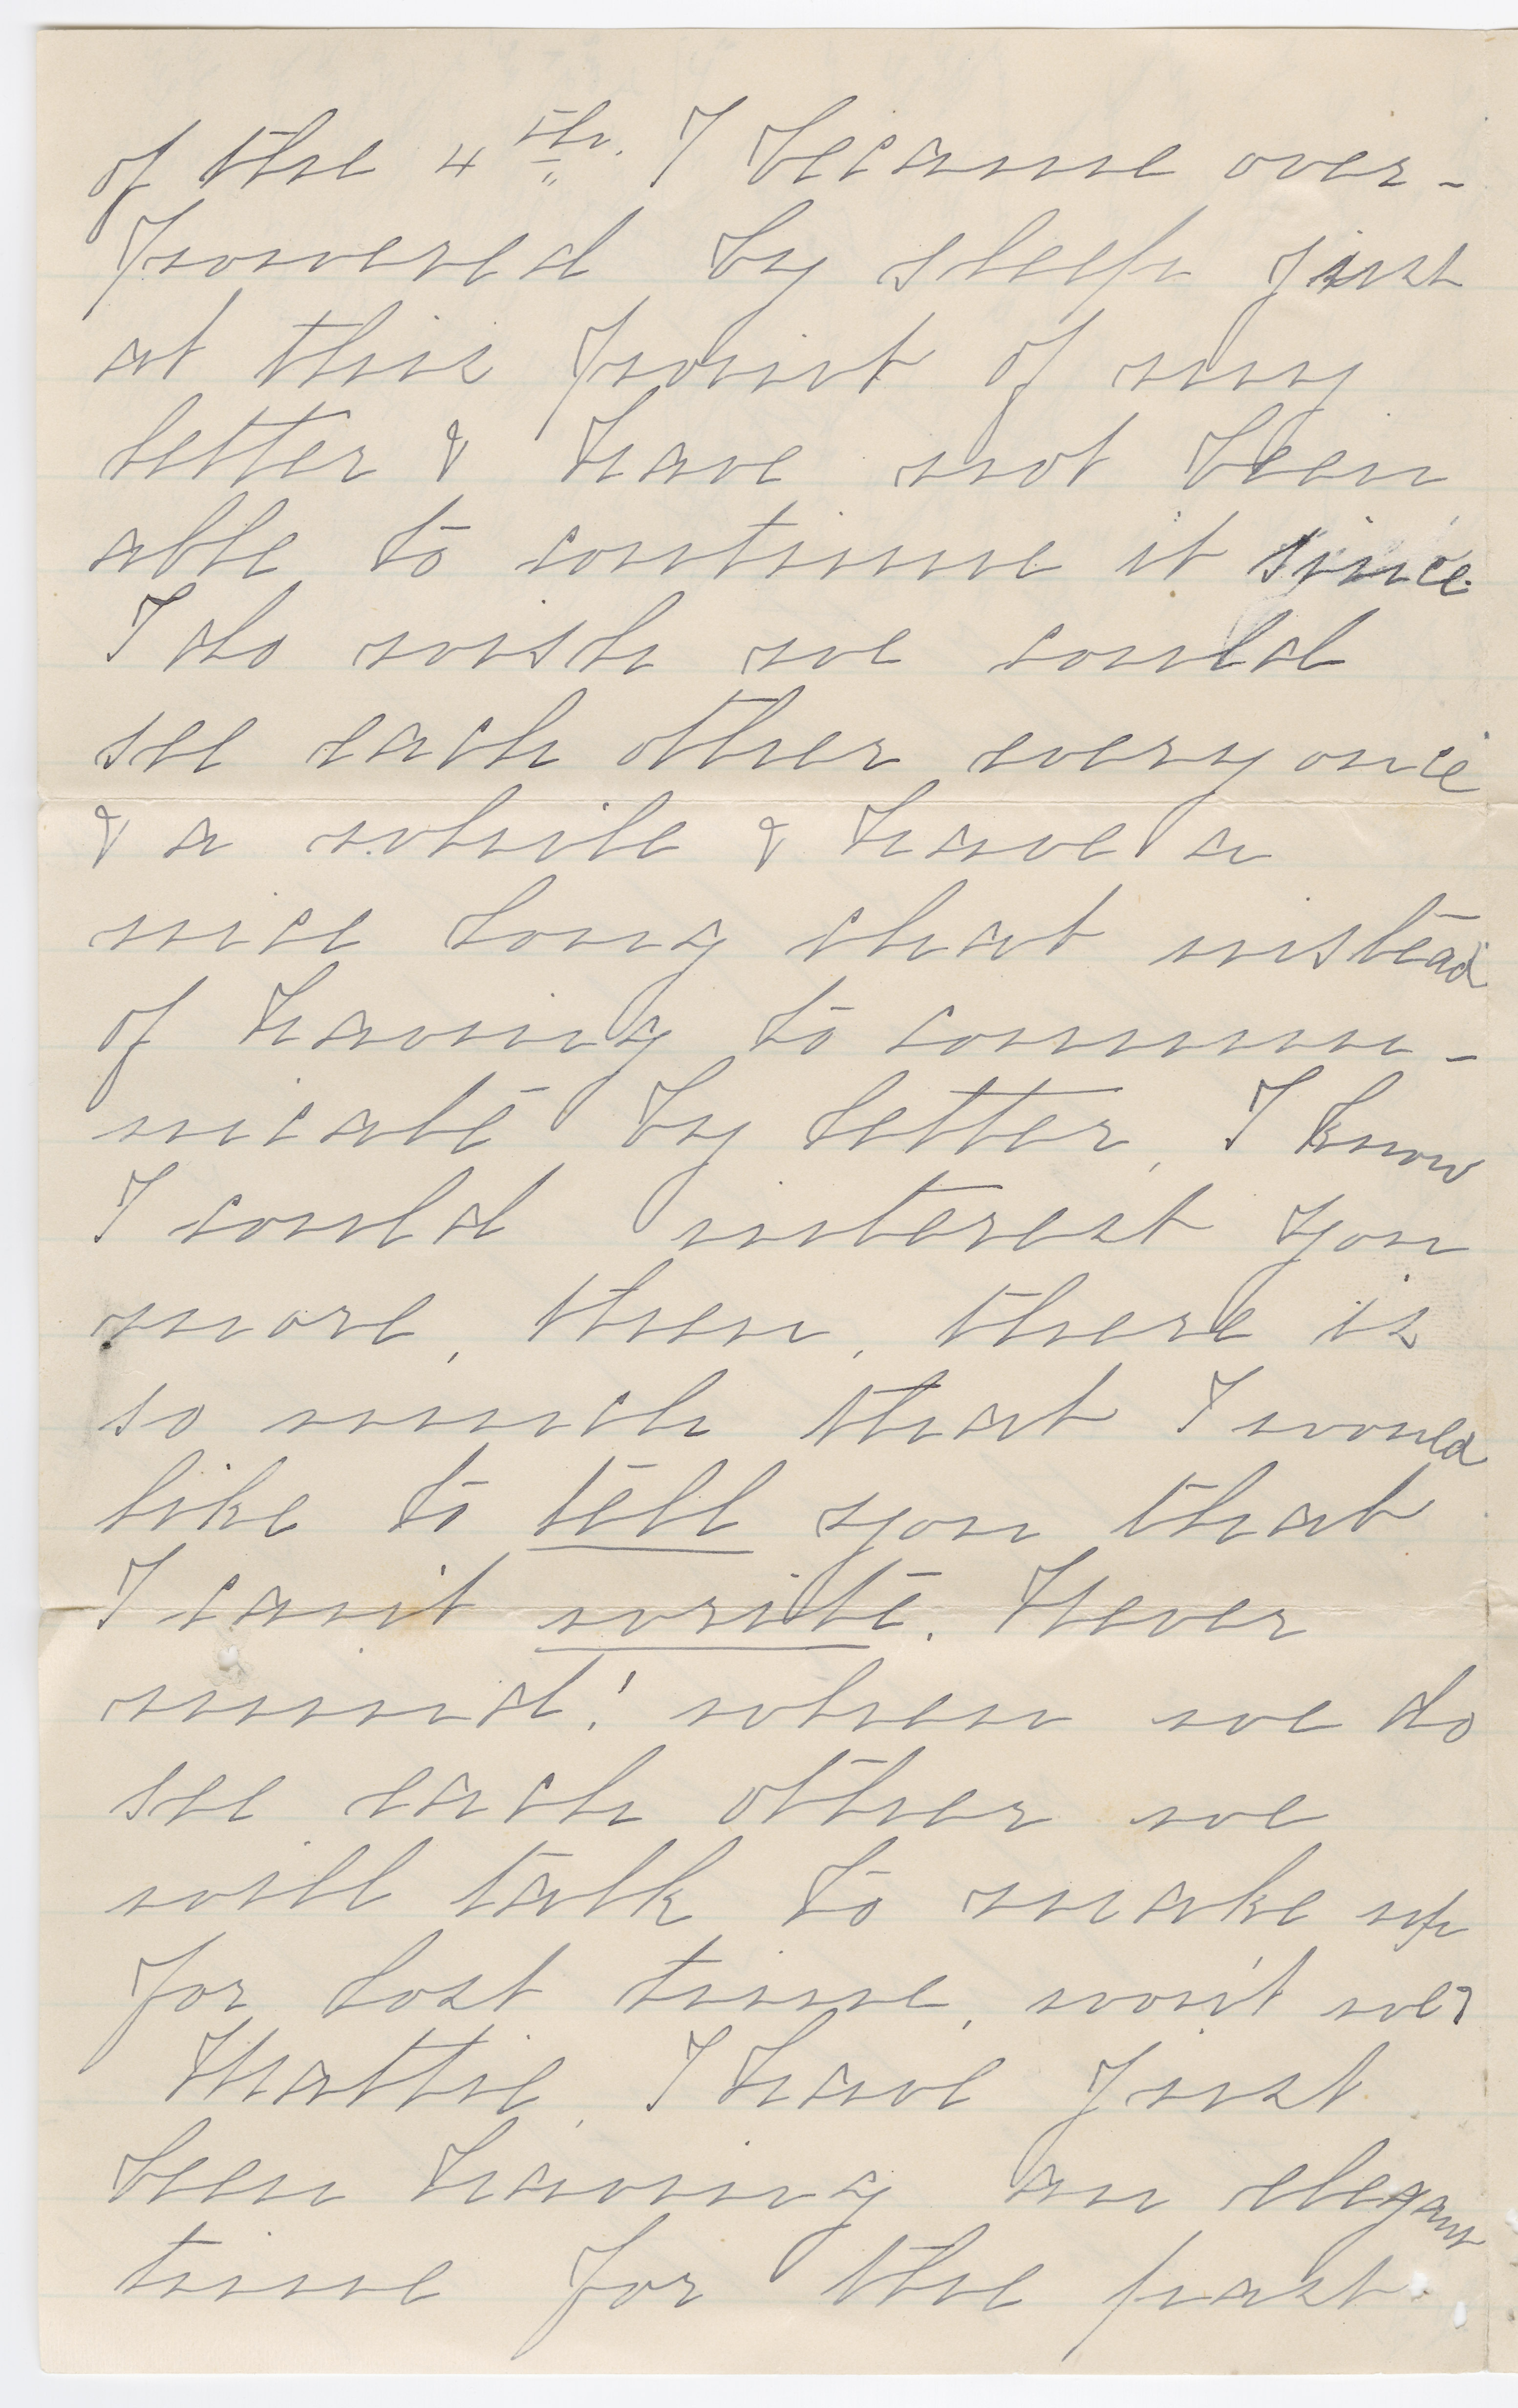 of the 4th. I became over-
powered by sleep just
at this point of my
letter & have not been
able to continue it since.
I do wish we could
see each other every once
& a while & have a
nice long chat instead
of having to commu-
nicate by letter, I know
I could interest you
more, then, there is
so much that I would
like to tell you that
I can't write. Never
mind! when we do
see each other we
will talk to make up
for lost time, won't we?
Mattie, I have just
been having an elegant
time for the past